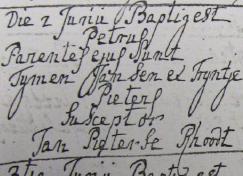 Die 2 Junij Baptizest
Petrus
Parentes ejus sunt
Tymen Jansen et Tryntje
Pieters
Susceptor
Jan Pieterse Rhoodt
Junij Baptizest